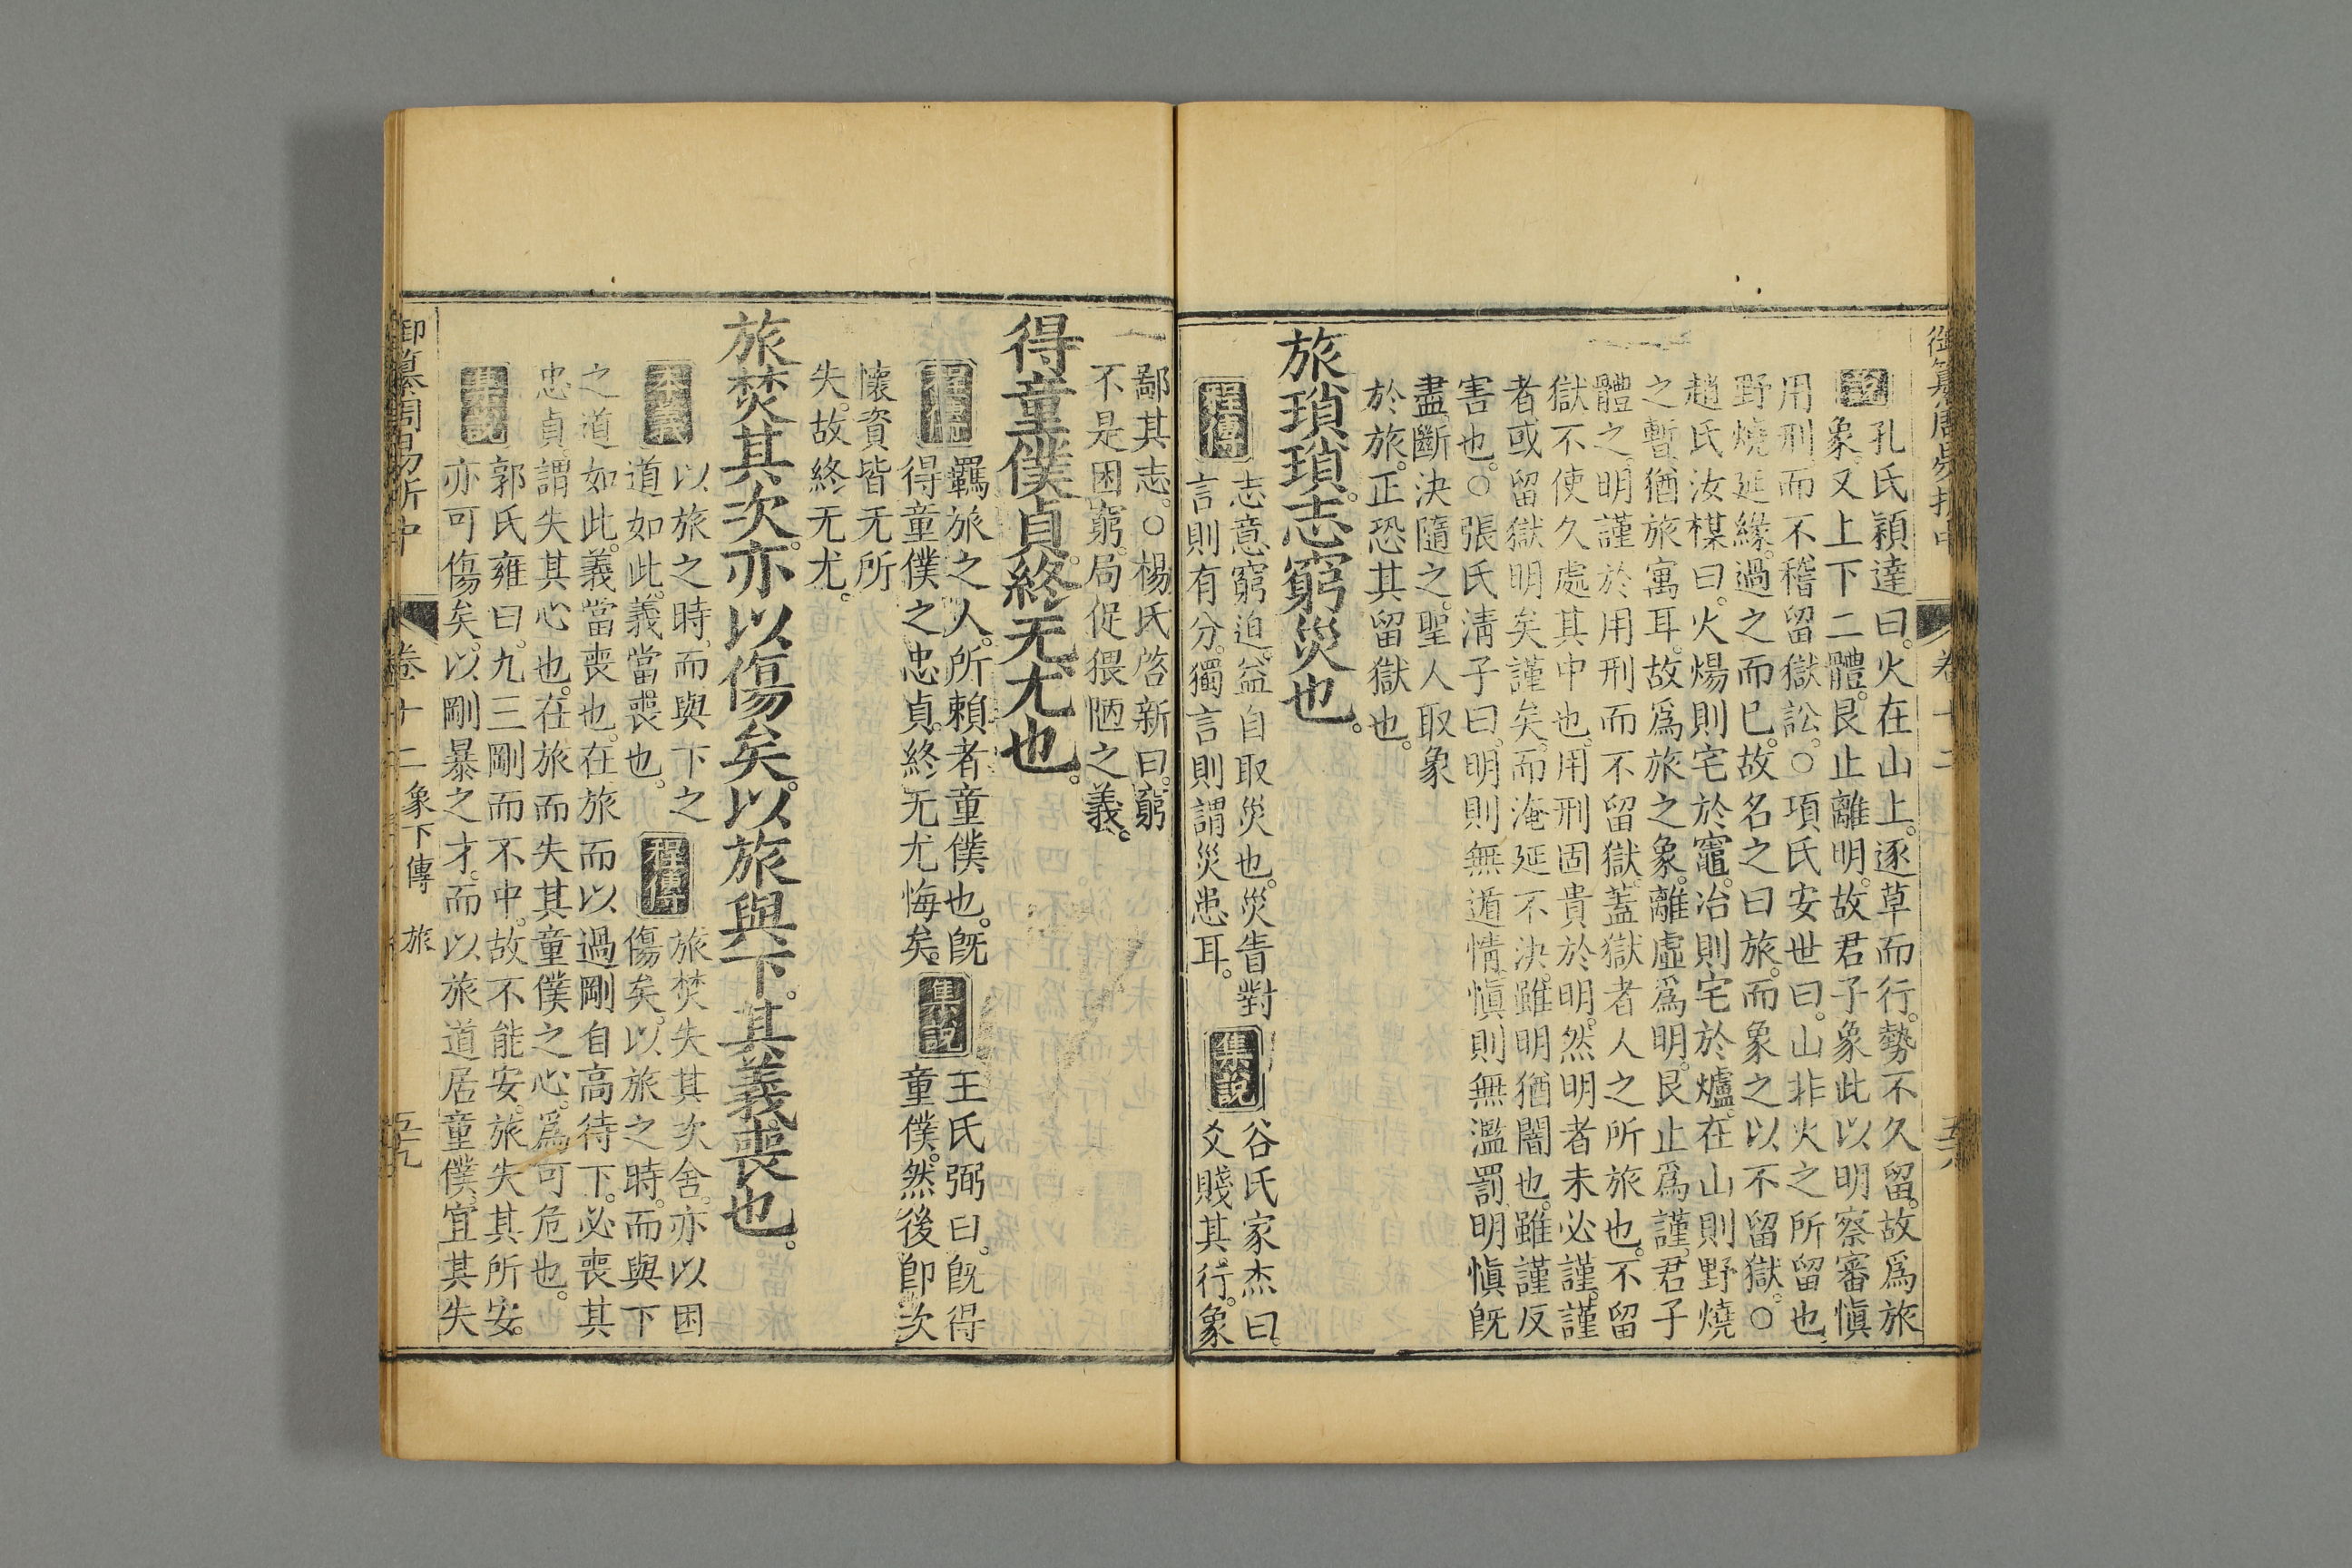 御纂周易折中 卷十二 五六
說 孔氏穎達曰。火在山上。逐草而行。勢不久留。故爲旅
象。又上下二體。艮止離明。故君子象此以明察審慎
用刑。而不稽留獄訟。○項氏安世曰。山非火之所留也。
野燒延緣。過之而已。故名之曰旅。而象之以不留獄。○
趙氏汝楳曰。火煬則宅於竈。冶則宅於爐。在山則野燒
之暫。猶旅寓耳。故爲旅之象。離虛爲明。艮止爲謹。君子
體之。明謹於用刑而不留獄。蓋獄者人之所旅也。不留
獄不使久處其中也。用刑固貴於明。然明者未必謹。謹
者或留獄。明矣謹矣。而淹延不決。雖明猶闇也。雖謹反
害也。○張氏清子曰。明則無遁情。慎則無濫罰。明慎旣
盡。斷決隨之。聖人取象
於旅。正恐其留獄也。
旅瑣瑣。志窮災也。
程傳 志意窮迫。益自取災也。災眚對
言則有分。獨言則謂災患耳。
集說 谷氏家杰曰。
爻賤其行。象
鄙其志。○楊氏啓新曰。窮
不是困窮。局促猥陋之義。
得童僕貞。終无尤也。
程傳 羈旅之人。所賴者童僕也。旣
得童僕之忠貞。終无尤悔矣。
集說 王氏弼曰。旣得
童僕。然後卽次
懷資皆无所
失。故終无尤。
旅焚其次。亦以傷矣。以旅與下。其義喪也。
本義 以旅之時。而與下之
道如此。義當喪也。
程傳 旅焚失其次舍。亦以困
傷矣。以旅之時。而與下
之道如此。義當喪也。在旅而以過剛自高待下。必喪其
忠貞。謂失其心也。在旅而失其童僕之心。爲可危也。
集說 郭氏雍曰。九三剛而不中。故不能安。旅失其所安。
亦可傷矣。以剛暴之才。而以旅道居童僕。宜其失
御纂周易折中 卷十二 象下傳 旅 五九